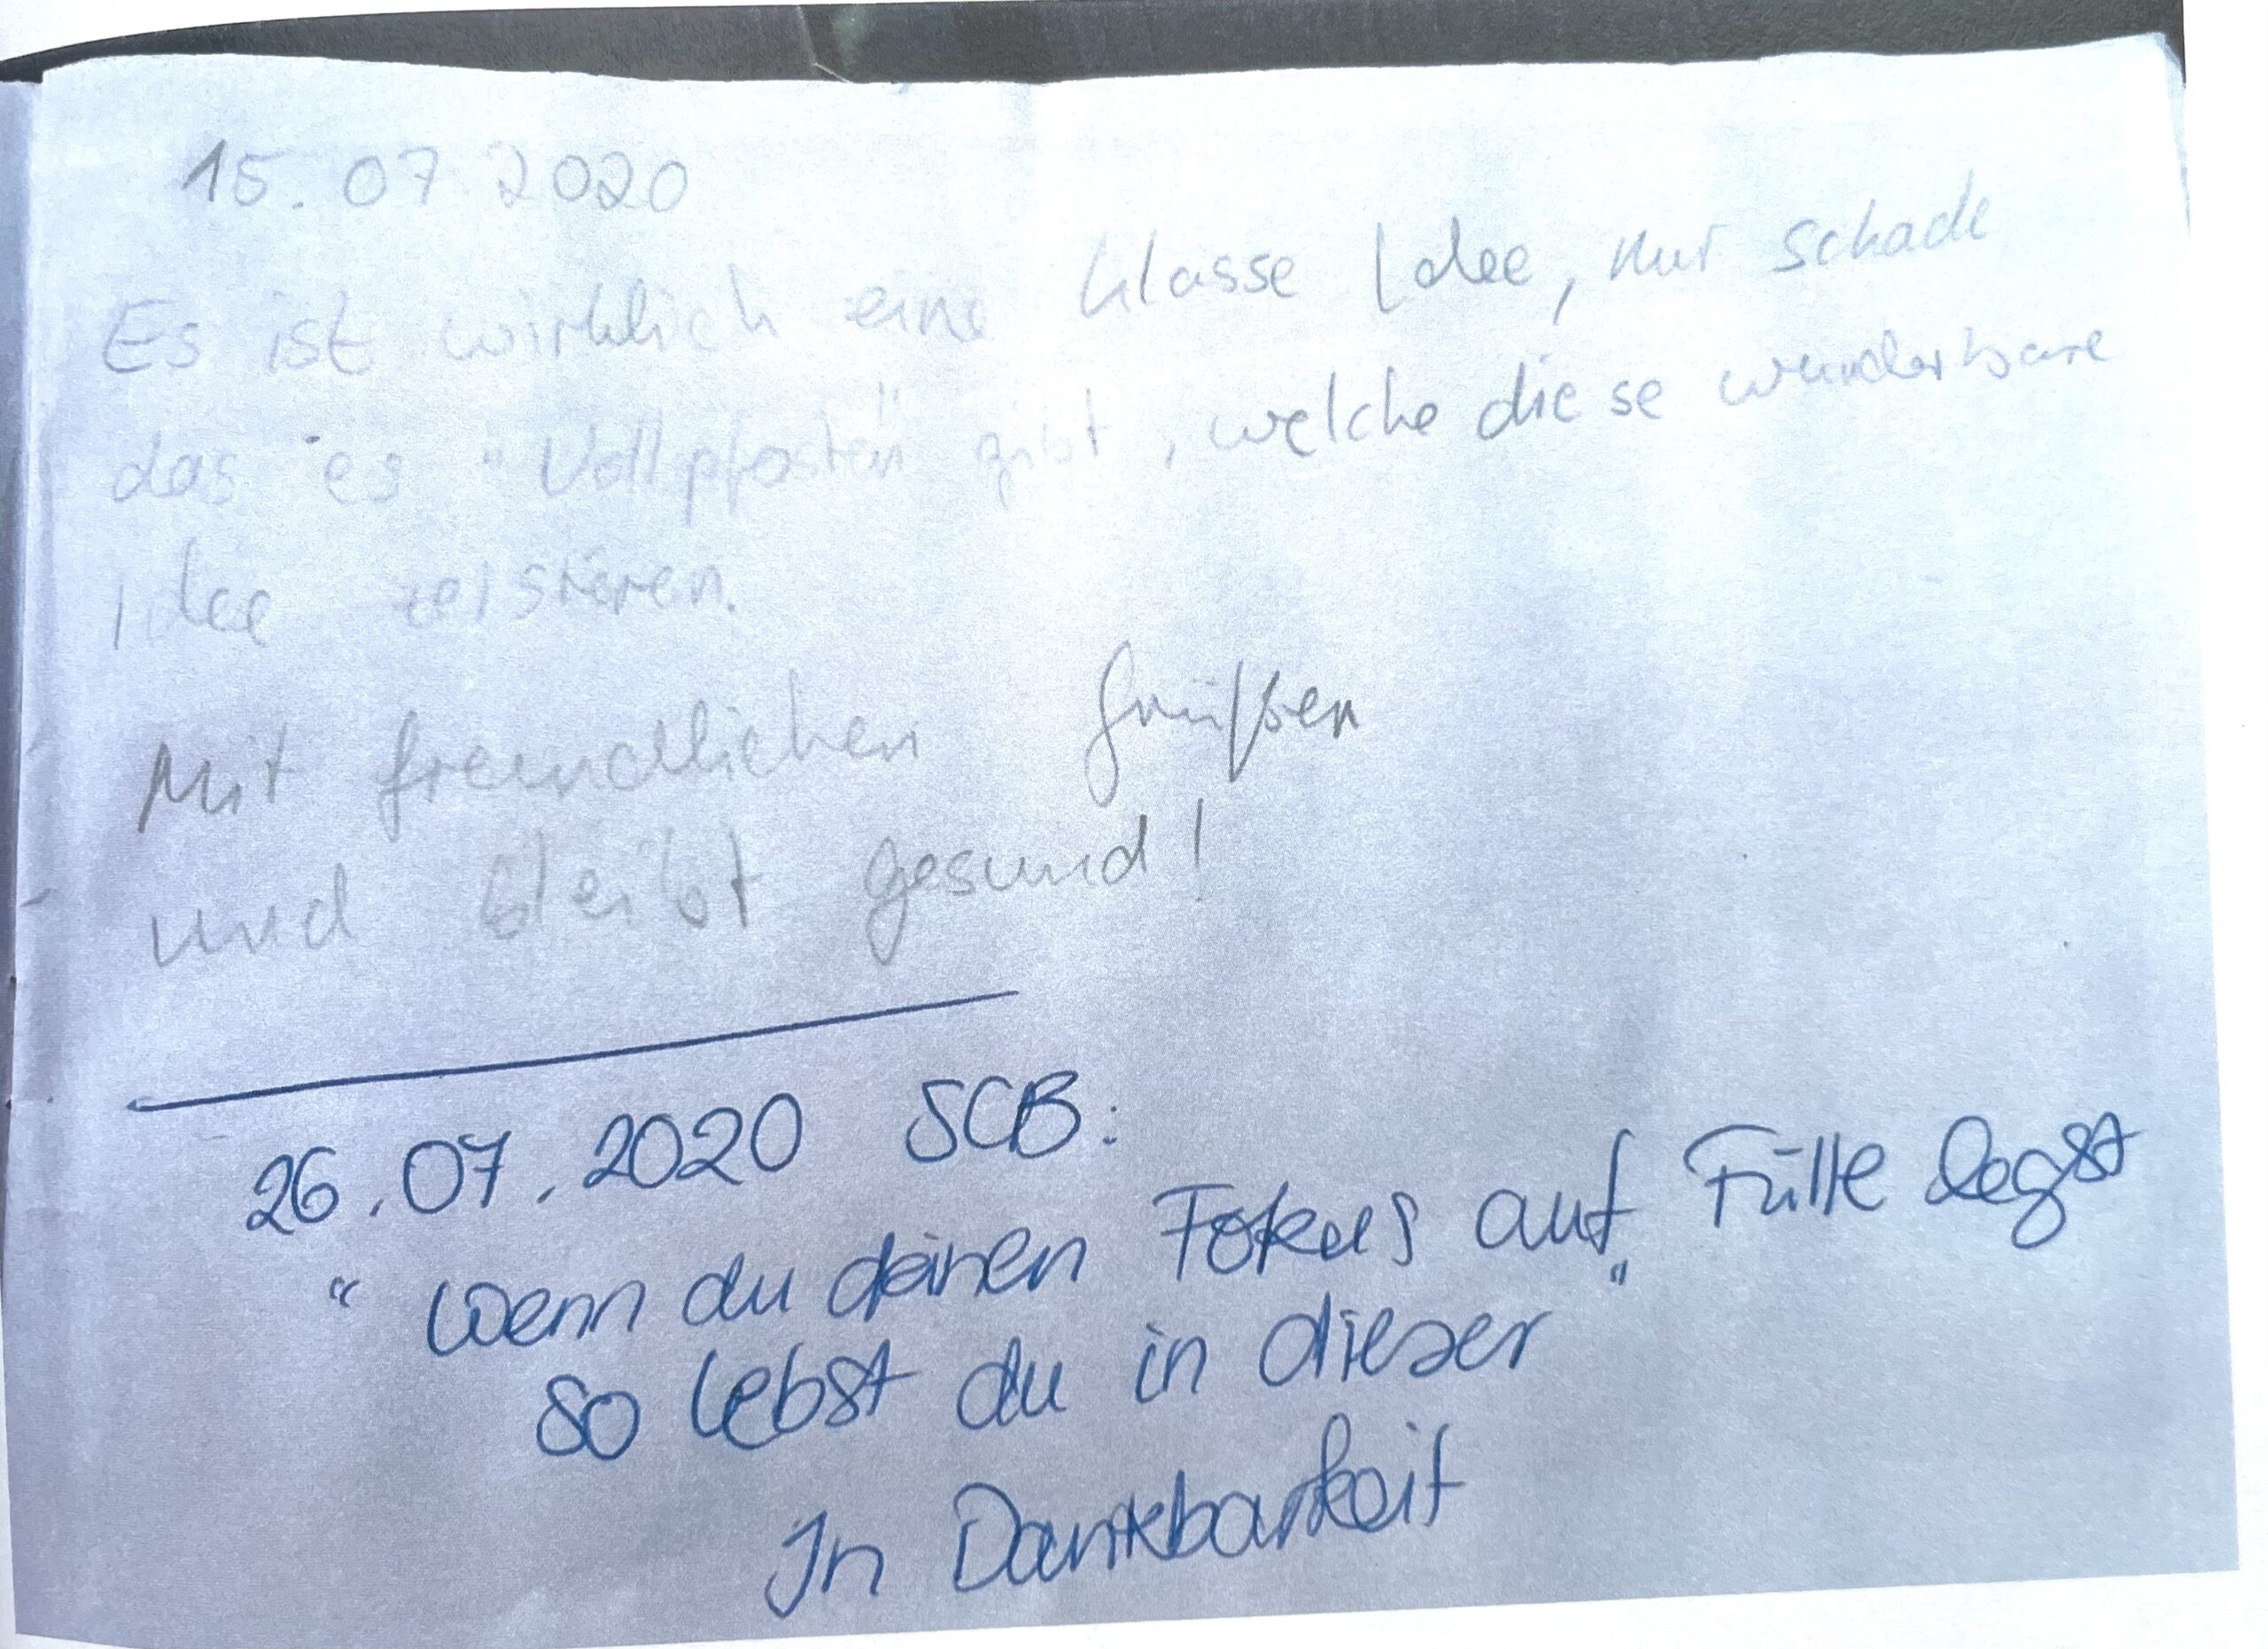 15.07 2020
Es ist wirklich eine klasse Idee, nur schade
das es "Vollpfosten" gibt, welche diese wunderbare
Idee
Mit freundlichen Grüßen
und bleibt gesund!
26.07.2020 SCB:
"Wenn du deinen Fokus auf Fülle legst
so lebst du in dieser"
In Dankbarkeit